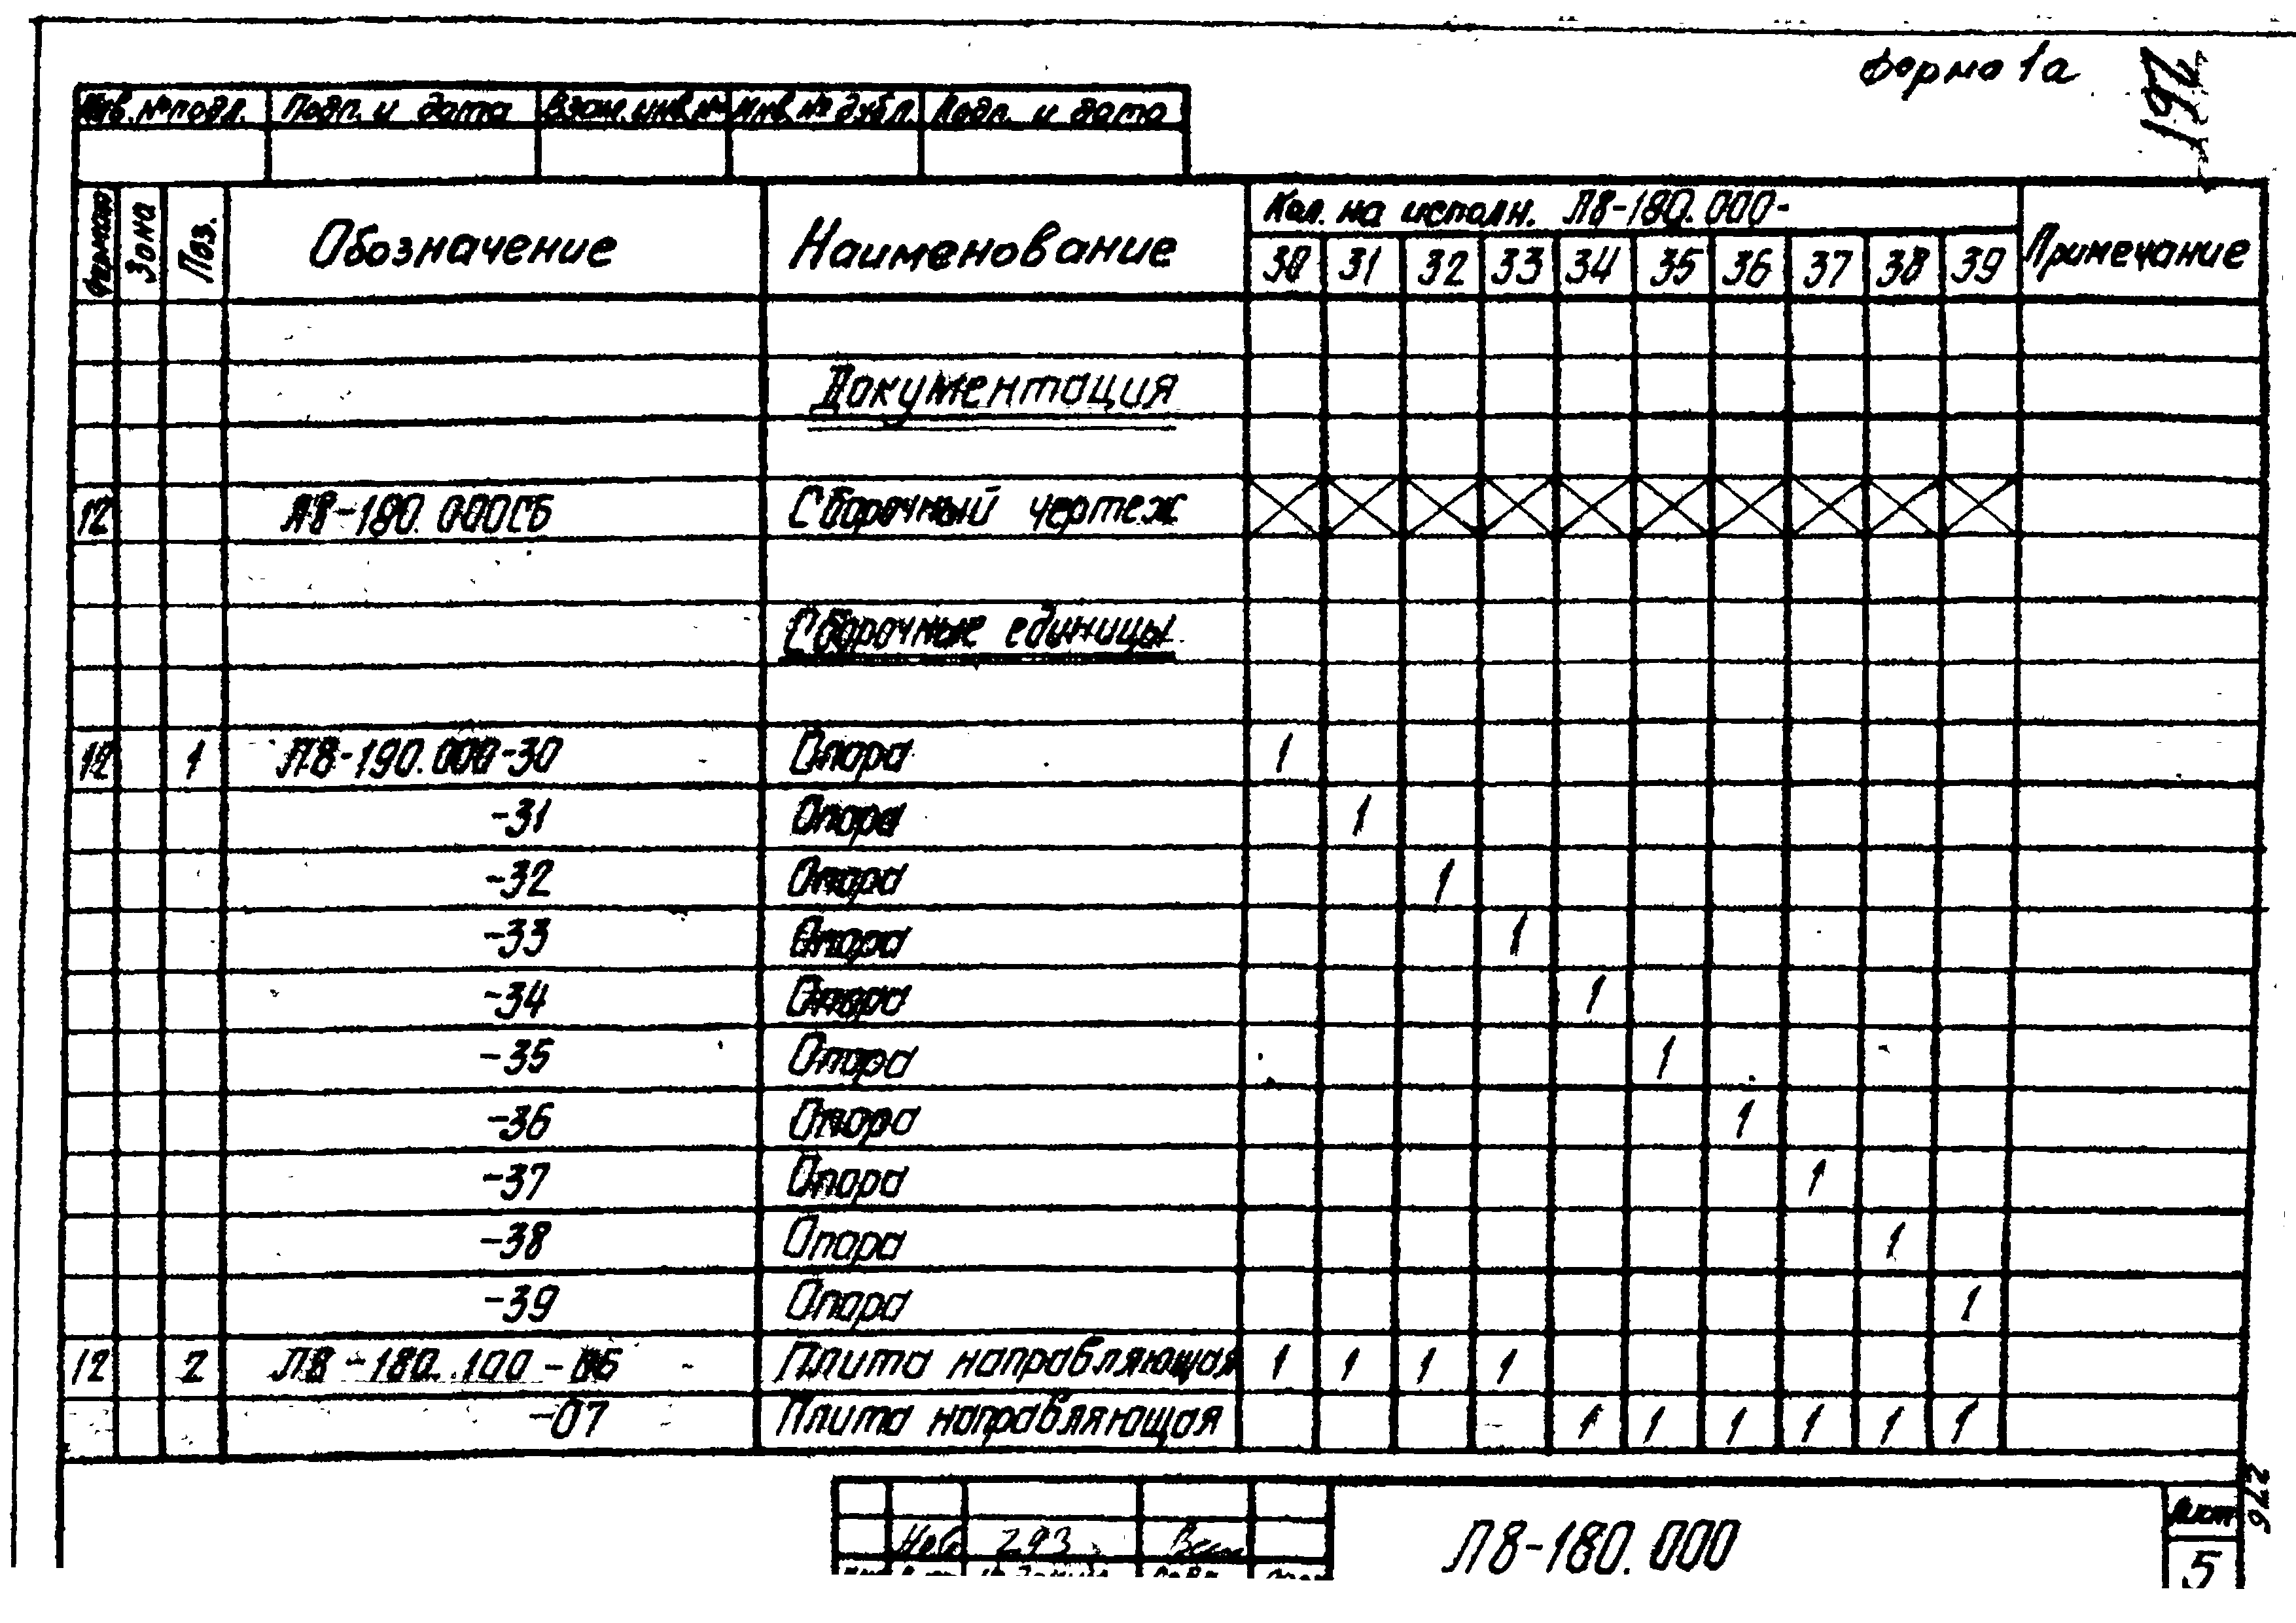 Форма 1а
197
Инв. № подл. Подп. и дата Взам. инв. № Инв. № дубл. Подп. и дата
Формат Зона Поз. Обозначение Наименование Кол. на исполн. Л8-180.000- Примечание
30 31 32 33 34 35 36 37 38 39
Документация
12 Л8-180.000СБ Сборочный чертеж
Сборочные единицы
12 1 Л8-190.000-30 Опора 1
-31 Опора 1
-32 Опора 1
-33 Опора 1
-34 Опора 1
-35 Опора 1
-36 Опора 1
-37 Опора 1
-38 Опора 1
-39 Опора 1
12 2 Л8-180.100-06 Плита направляющая 1 1 1 1
-07 Плита направляющая 1 1 1 1 1 1
Нов 293
Л8-180.000
Лист
5